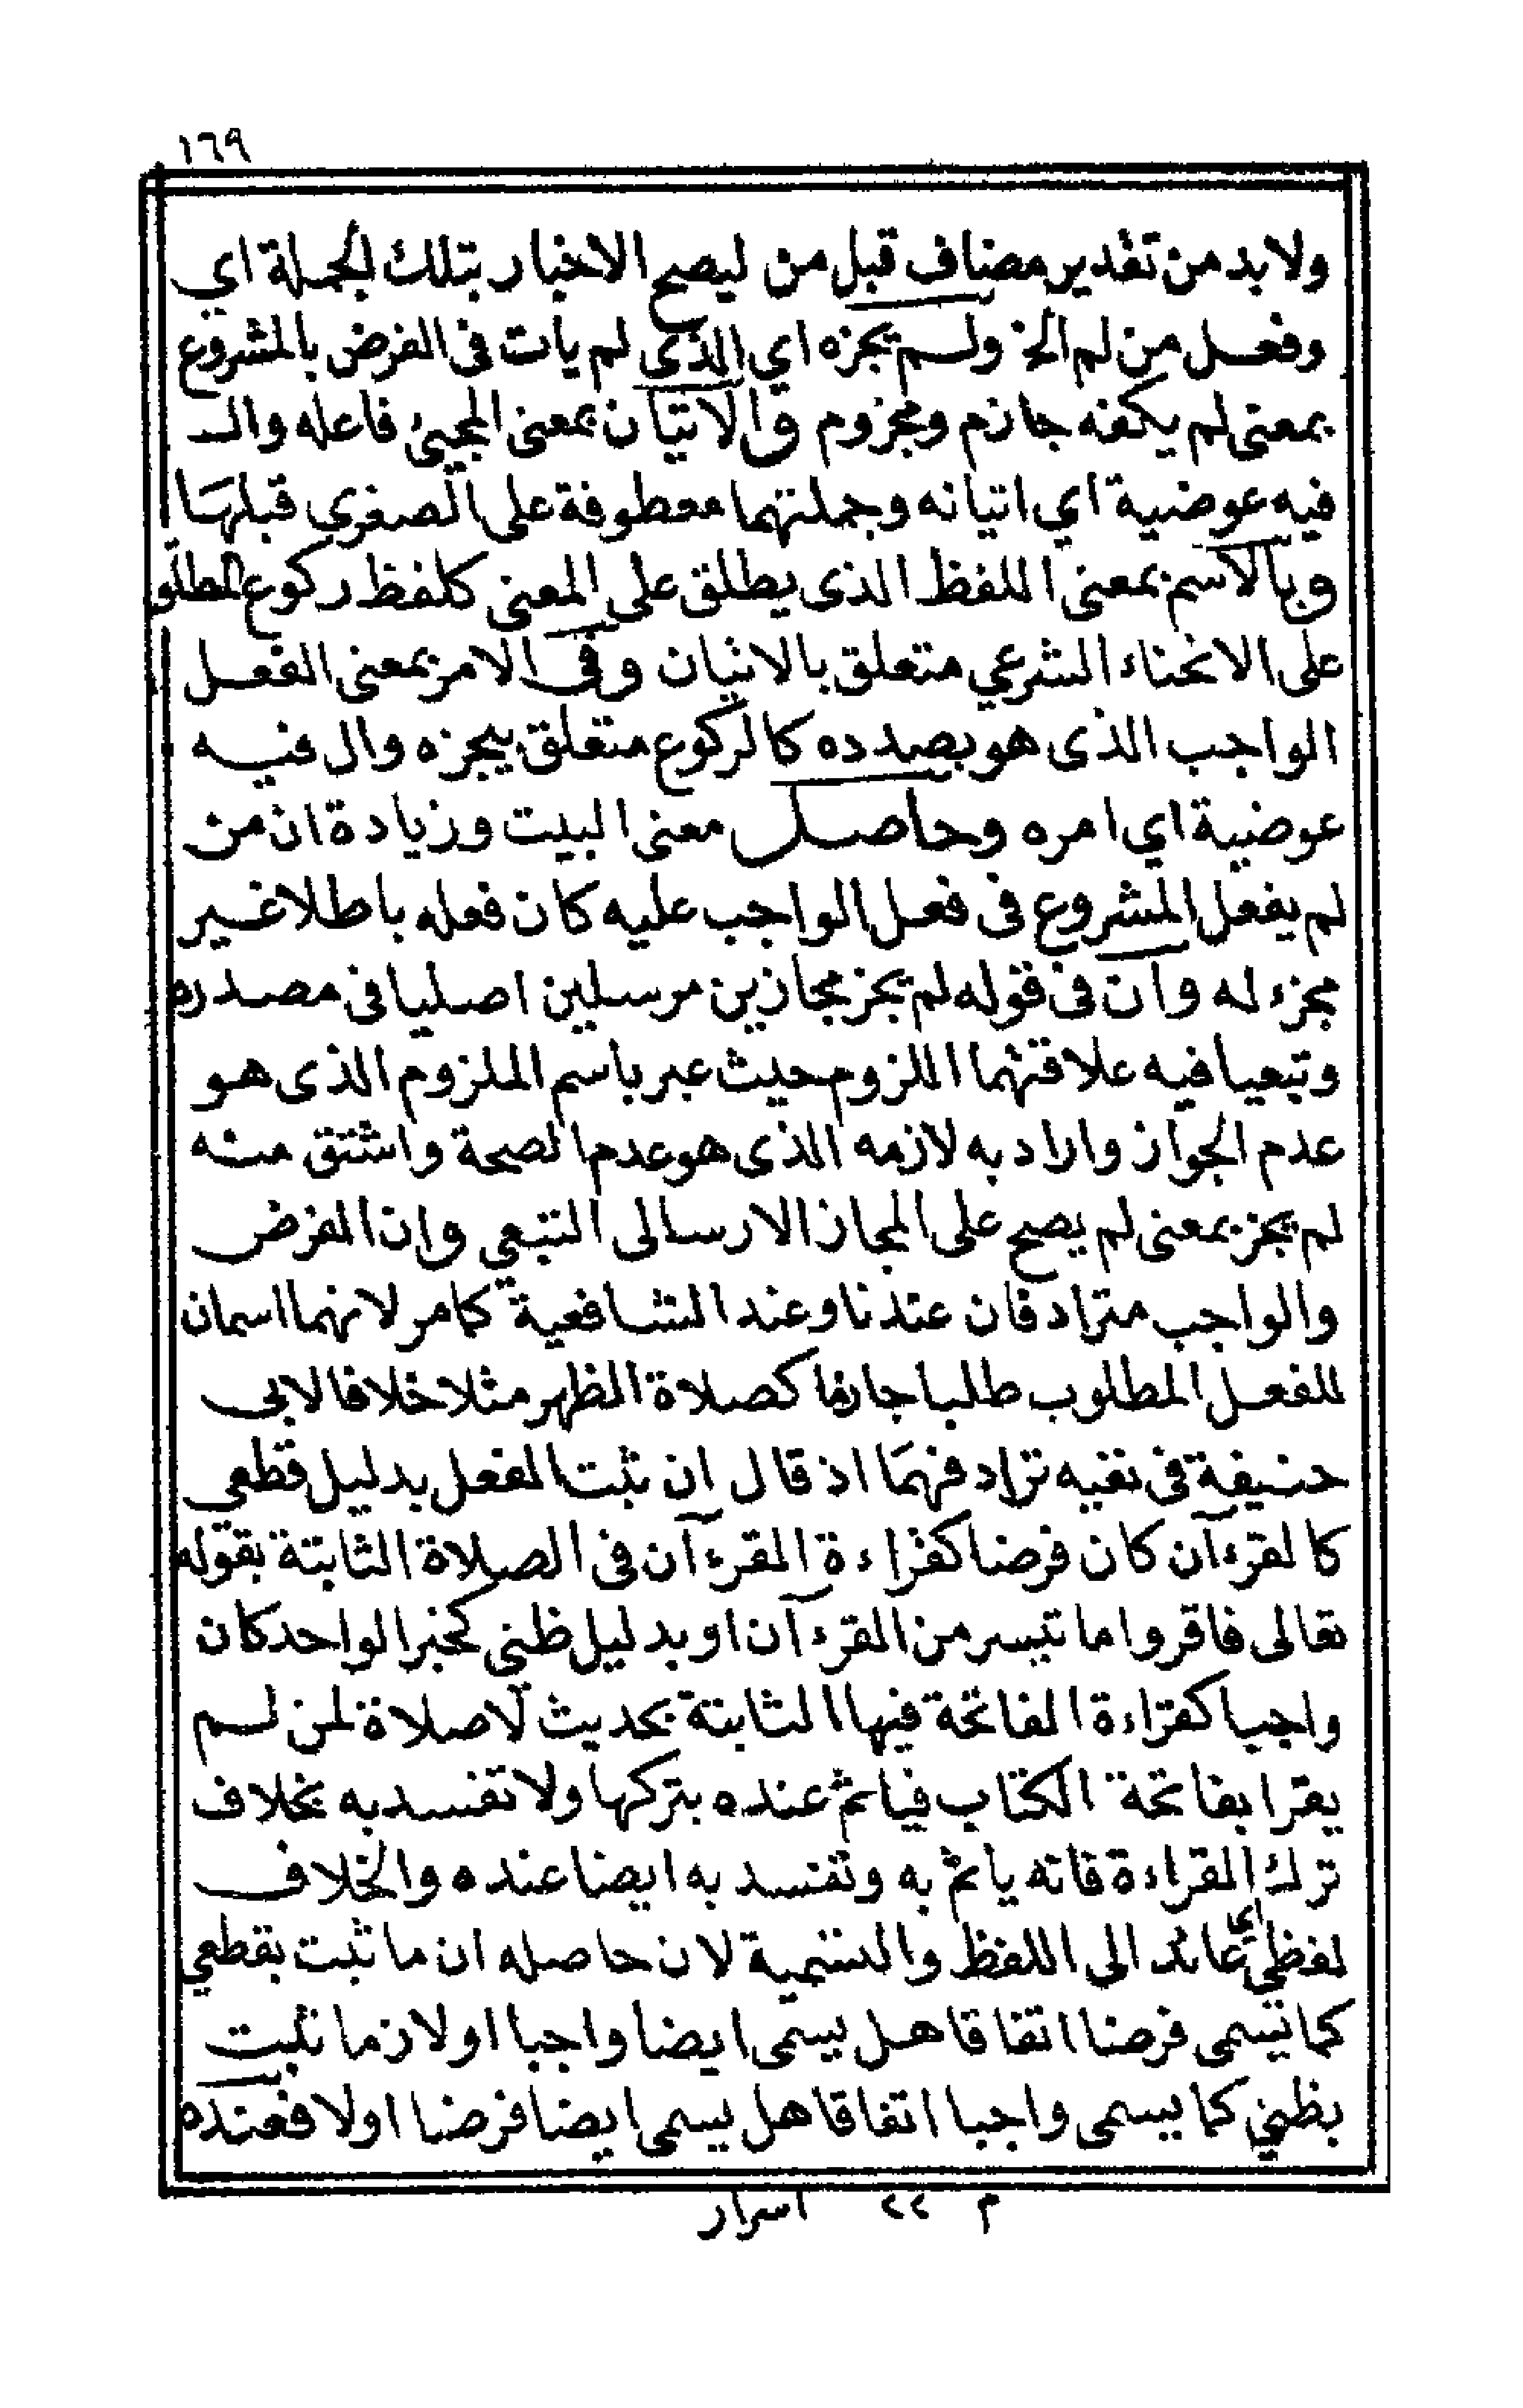 ١٦٩
ولا بد من تقدير مضاف قبل من ليصح الاخبار بتلك الجملة اي
وفعل من لم الخ ولم يجزه اي الذى لم يات فى الفرض بالمشروع
بمعنى لم يكفه جازم ومجزوم والاتيان بمعنى المجيئ فاعله وال
فيه عوضية اي اتيانه وجملتهما معطوفة على الصغرى قبلها
وبالاسم بمعنى اللفظ الذى يطلق على المعنى كلفظ ركوع المطلو
على الانحناء الشرعي متعلق بالاتيان وفى الامر بمعنى الفعل
الواجب الذى هو بصدده كالركوع متعلق بيجزه وال فيه
عوضية اي امره وحاصل معنى البيت وزيادة ان من
لم يفعل المشروع فى فعل الواجب عليه كان فعله باطلا غير
مجزء له وان فى قوله لم يجز مجازين مرسلين اصليا فى مصدره
وتبعيا فيه علاقتهما اللزوم حيث عبر باسم الملزوم الذى هو
عدم الجواز واراد به لازمه الذى هو عدم الصحة واشتق منه
لم يجز بمعنى لم يصح على المجاز الارسالى التبعي وان الفرض
والواجب مترادفان عندنا وعند الشافعية كما مر لانهما اسمان
للفعل المطلوب طلبا جازما كصلاة الظهر مثلا خلافا لابى
حنيفة فى نفيه ترادفهما اذ قال ان ثبت الفعل بدليل قطعي
كالقرءآن كان فرضا كقراءة القرءآن فى الصلاة الثابتة بقوله
تعالى فاقروا ما تيسر من القرءآن او بدليل ظني كخبر الواحد كان
واجبا كقراءة الفاتحة فيها الثابتة بحديث لا صلاة لمن لم
يقرا بفاتحة الكتاب فياثم عنده بتركها ولا تفسد به بخلاف
ترك القراءة فانه ياثم به وتفسد به ايضا عنده والخلاف
لفظي اي عائد الى اللفظ والتسمية لان حاصله ان ما ثبت بقطعي
كما يسمى فرضا اتفاقا هل يسمى ايضا واجبا او لا وما ثبت
بظني كما يسمى واجبا اتفاقا هل يسمى ايضا فرضا او لا فعنده
م ٢٢ اسرار